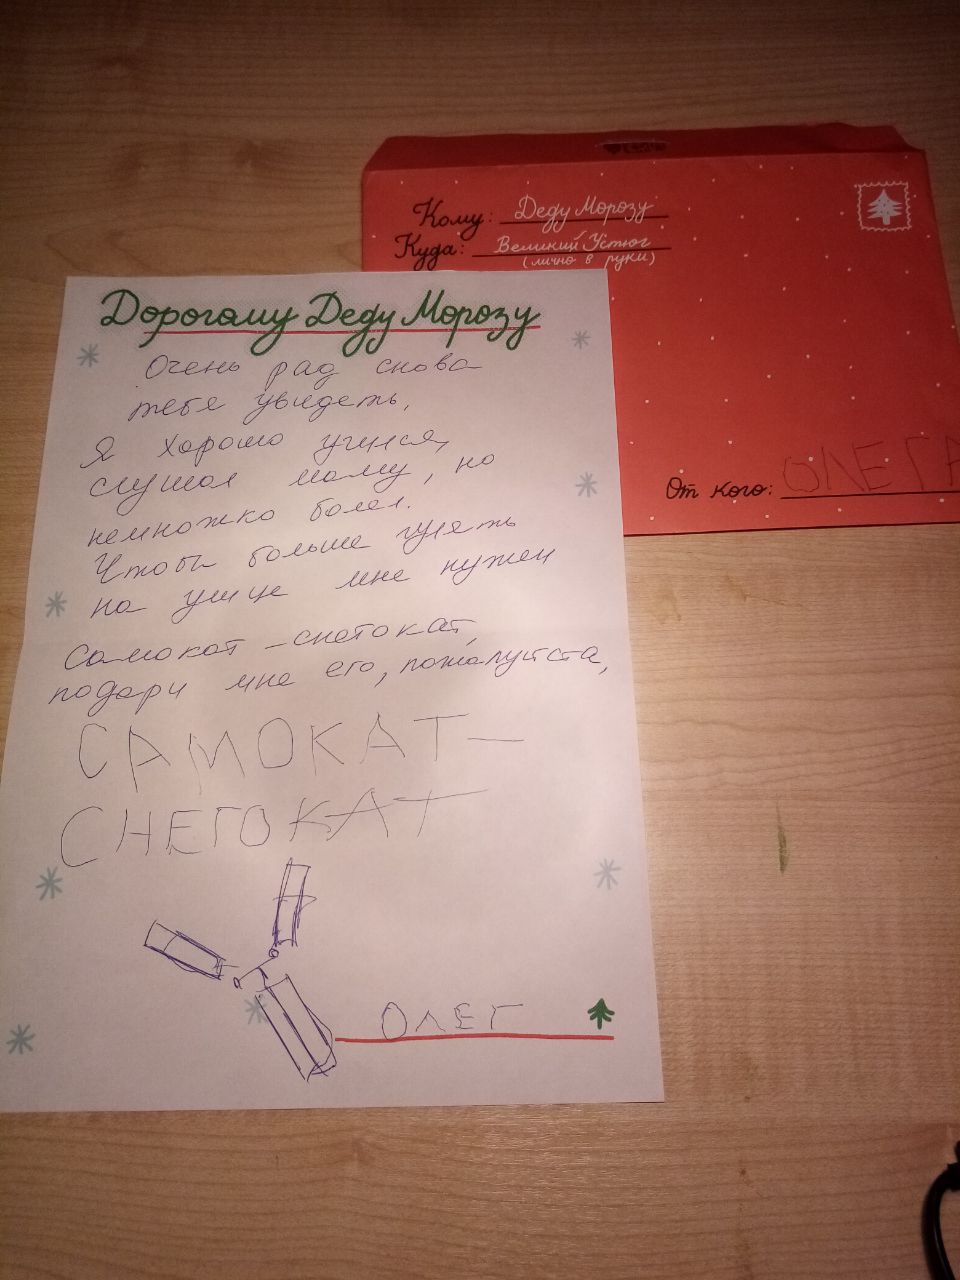 Кому: Деду Морозу
Куда: Великий Устюг
(лично в руки)
От кого: ОЛЕГА
Дорогому Деду Морозу
Очень рад снова
тебя увидеть.
Я хорошо учился,
слушал маму, но
немножко болел.
Чтобы больше гулять
на улице мне нужен
самокат-снегокат,
подари мне его, пожалуйста,
САМОКАТ-
СНЕГОКАТ
ОЛЕГ